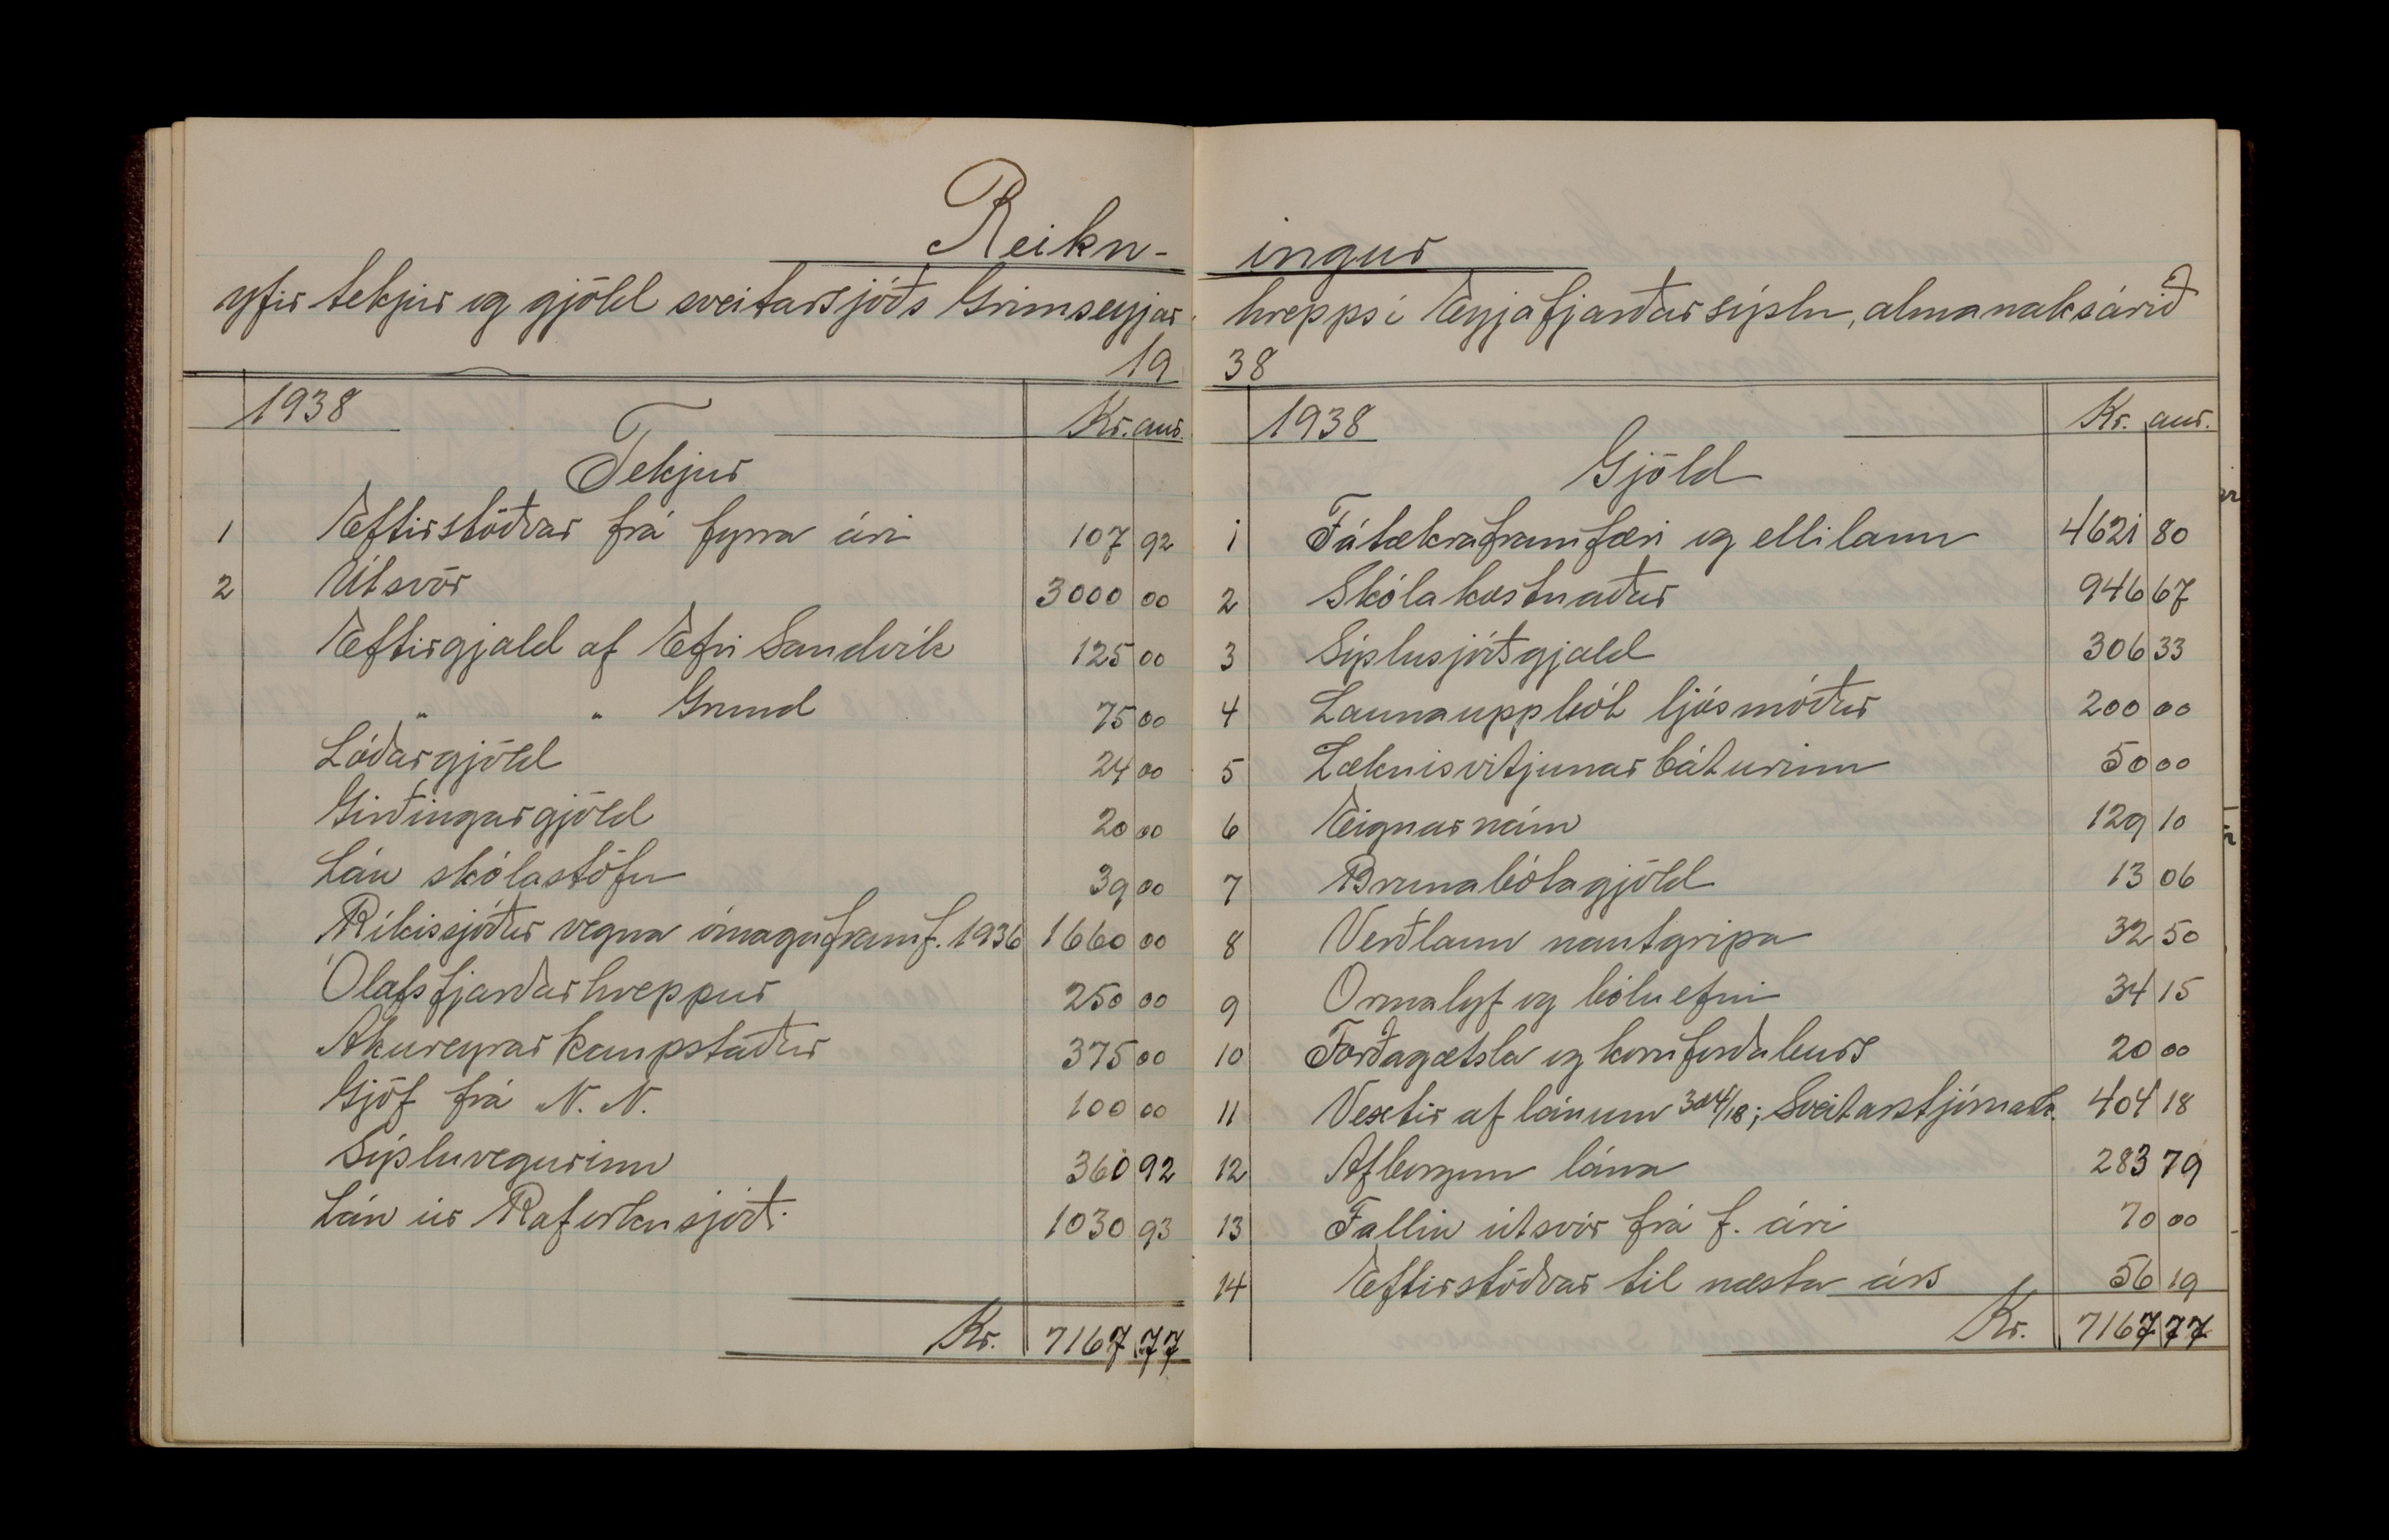 Reikn-
yfir tekjur og gjöld sveitarsjóðs Grimseyjar
19
1938
Kr. aur.
Tekjur
1 Eftirstöðvar frá fyrra ári 107 92
2 Útsvör 3000 00
Eftirgjald af Efri Sandvík 125 00
" " Grund 75 00
Lóðargjöld 24 00
Girðingargjöld 20 00
Lán skólastofu 39 00
Ríkissjóður vegna ómagaframf. 1936 1660 00
Ólafsfjarðarhreppur 250 00
Akureyrar Kaupstaður 375 00
Gjöf frá N. N. 100 00
Sýsluvegurinn 360 92
Lán úr Raforkusjóði 1030 93
Kr. 7167 77
ingur
hrepps í Eyjafjarðarsýslu, almanaksárið
38
1938
Kr. aur.
Gjöld
1 Fátækraframfæri og ellilaun 4621 80
2 Skólakostnaður 946 67
3 Sýslusjóðsgjald 306 33
4 Launauppbót ljósmóður 200 00
5 Læknisvitjunarbáturinn 50 00
6 Eignarnám 129 10
7 Brunabótagjöld 13 06
8 Verðlaun nautgripa 32 50
9 Ormalyf og bóluefni 34 15
10 Forðagætsla og kornforðabúrs 20 00
11 Vextir af lánum 304/18; Sveitarstjórnark. 404 18
12 Afborgun lána 283 79
13 Fallin útsvör frá f. ári 70 00
14 Eftirstöðvar til næsta árs 56 19
Kr. 7167 77